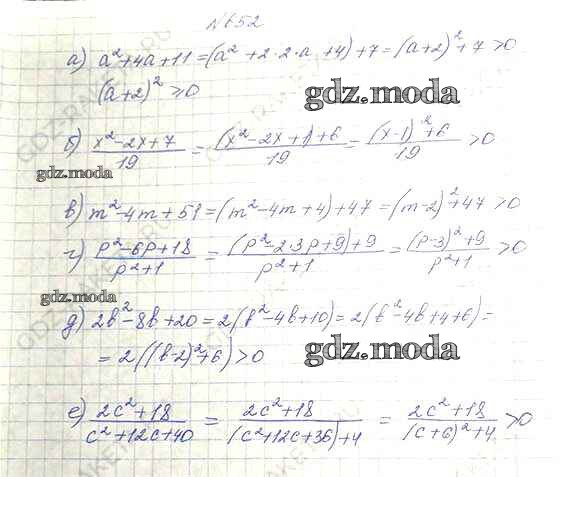 №652
а) a²+4a+11=(a²+2·2·a+4)+7=(a+2)²+7>0
(a+2)²≥0
gdz.moda
б) (x²-2x+7)/19 = ((x²-2x+1)+6)/19 = ((x-1)²+6)/19 >0
gdz.moda
в) m²-4m+51=(m²-4m+4)+47=(m-2)²+47>0
г) (p²-6p+18)/(p²+1) = ((p²-2·3p+9)+9)/(p²+1) = ((p-3)²+9)/(p²+1) >0
gdz.moda
д) 2b²-8b+20=2(b²-4b+10)=2(b²-4b+4+6)=
=2((b-2)²+6)>0
gdz.moda
е) (2c²+18)/(c²+12c+40) = (2c²+18)/((c²+12c+36)+4) = (2c²+18)/((c+6)²+4) >0